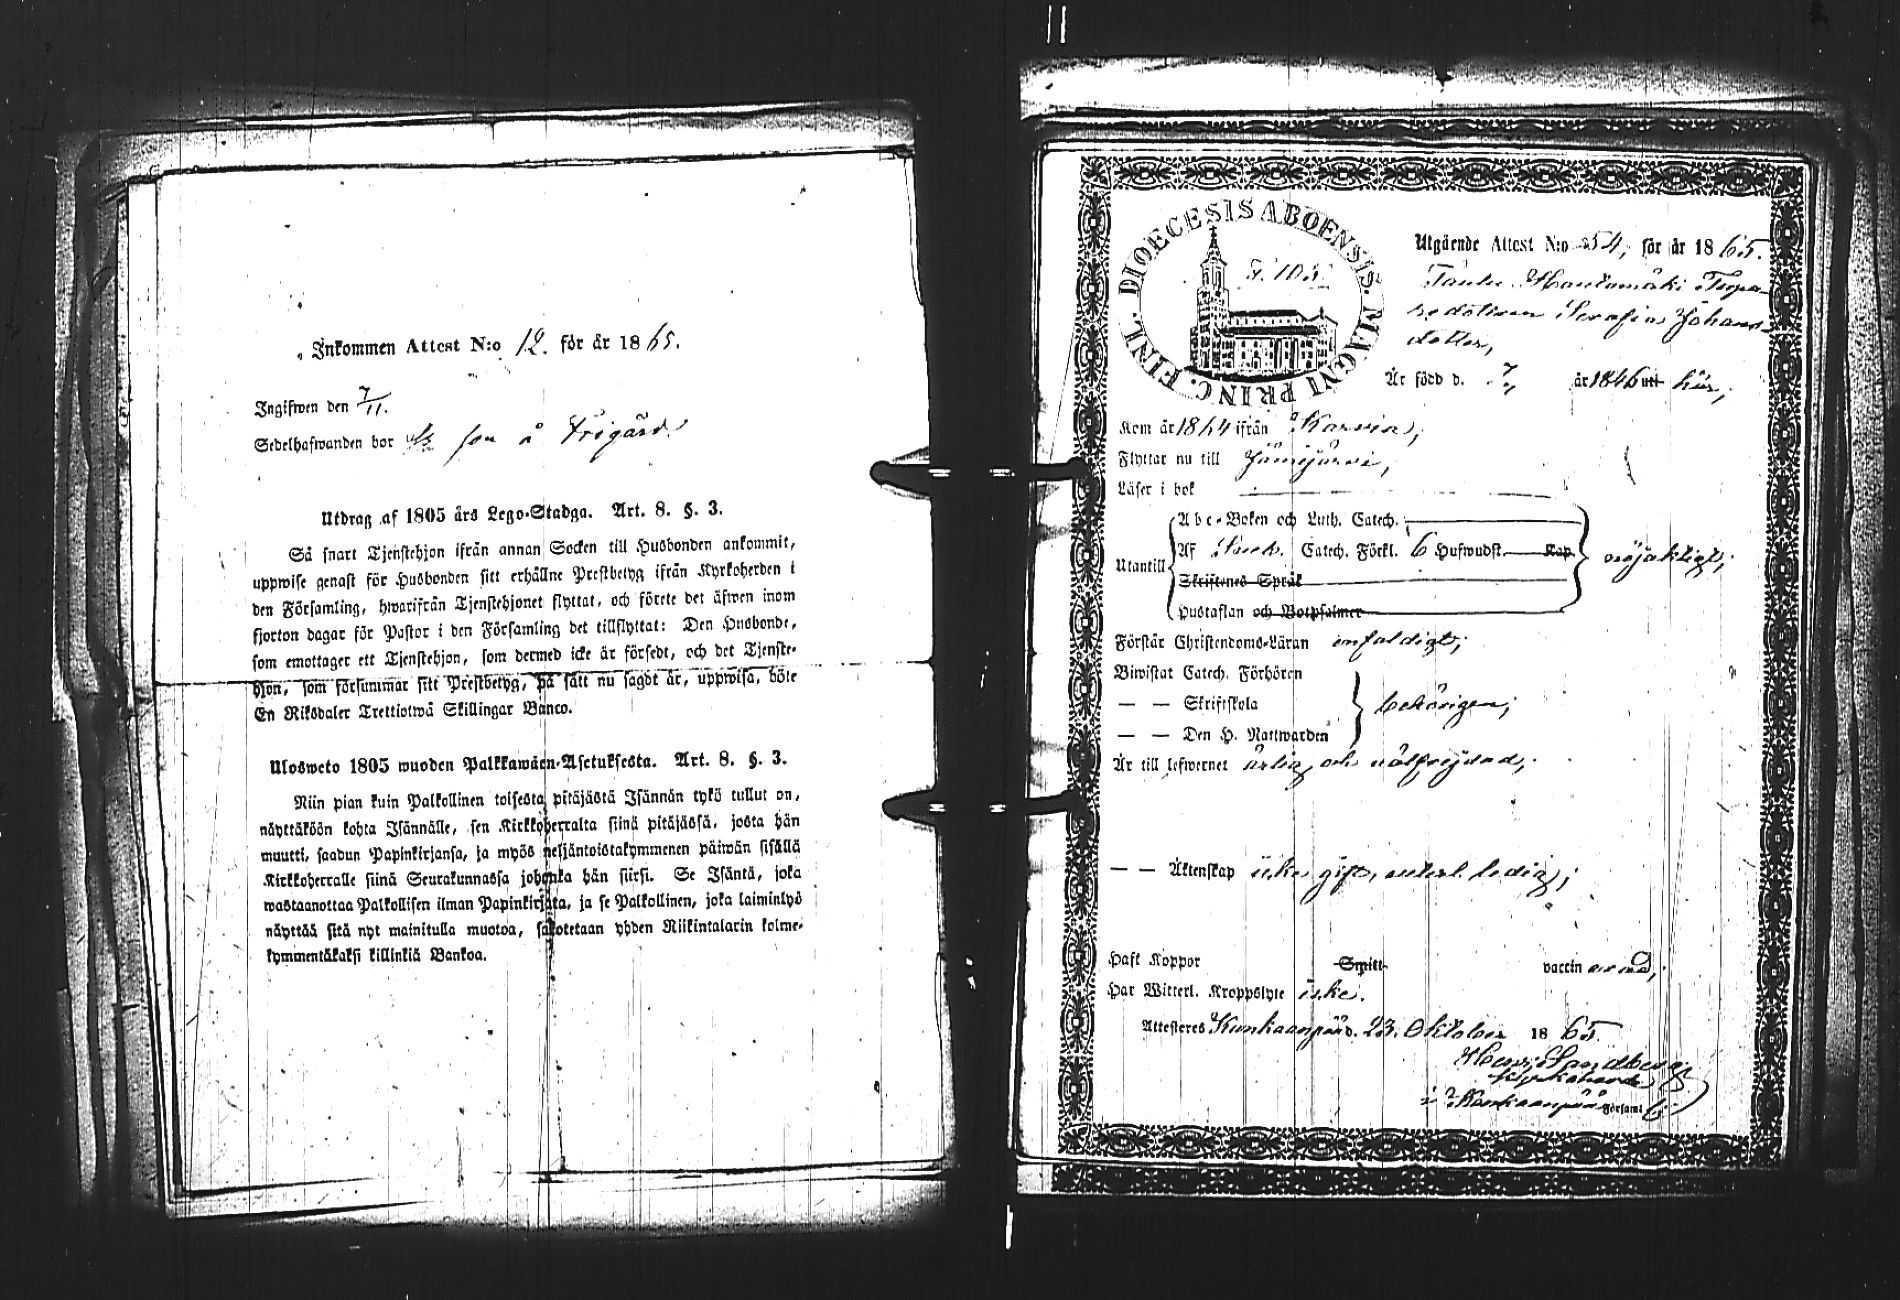 Inkommen Attest N:o 12. för år 1865.
Ingifwen den 7/11.
Sedelhafwanden bor som å Frigård.
Utdrag af 1805 års Lego-Stadga. Art. 8. §. 3.
Så snart Tjenstehjon ifrån annan Socken till Husbonden ankommit,
uppwise genast för Husbonden sitt erhållne Prestbetyg ifrån Kyrkoherden i
den Församling, hwarifrån Tjenstehjonet flyttat, och förete det äfwen inom
fjorton dagar för Pastor i den Församling det tillflyttat: Den Husbonde,
som emottager ett Tjenstehjon, som dermed icke är försedt, och det Tjenste-
hjon, som försummar sitt Prestbetyg, på sätt nu sagdt är, uppwisa, böte
En Riksdaler Trettiotwå Skillingar Banco.
Ulosweto 1805 wuoden Palkkawäen-Asetuksesta. Art. 8. §. 3.
Niin pian kuin Palkollinen toisesta pitäjästä Isännän tykö tullut on,
näyttäköön kohta Isännälle, sen Kirkkoherralta siinä pitäjässä, josta hän
muutti, saadun Papinkirjansa, ja myös neljäntoistakymmenen päiwän sisällä
Kirkkoherralle siinä Seurakunnassa johonka hän siirsi. Se Isäntä, joka
wastaanottaa Palkollisen ilman Papinkirjata, ja se Palkollinen, joka laiminlyö
näyttää sitä nyt mainitulla muotoa, sakotetaan yhden Riikintalarin kolme-
kymmentäkaksi killinkiä Bankoa.
DIOECESIS ABOENSIS. MAGNI PRINC. FINL.
F. 103.
Utgående Attest N:o 254, för år 1865.
Hautamäki Torpa-
redottren Serafia Johans-
dotter,
Är född d. år 1846 uti här,
Kom år 1864 ifrån Karvia,
Flyttar nu till Jämijärvi,
Läser i bok
Utantill
Abc-Boken och Luth. Catech.
Af Catech. Förkl. 6 Hufwudst. Kap
Skriftenes Språk
Hustaflan och Botpsalmer
nöjaktigt;
Förstår Christendoms-Läran enfaldigt;
Biwistat Catech. Förhören
— — Skriftskola
— — Den H. Nattwarden
behörigen;
Är till lefwernet ärlig och välfrejdad,
— — Äktenskap icke gift, utan ledig;
Haft Koppor Smitt- vaccinerad,
Har Witterl. Kroppslyte icke.
Attesteres Kankaanpää d. 23. Oktober 1865.
Sandberg
Kyrkoherde
i Kankaanpää Församl.